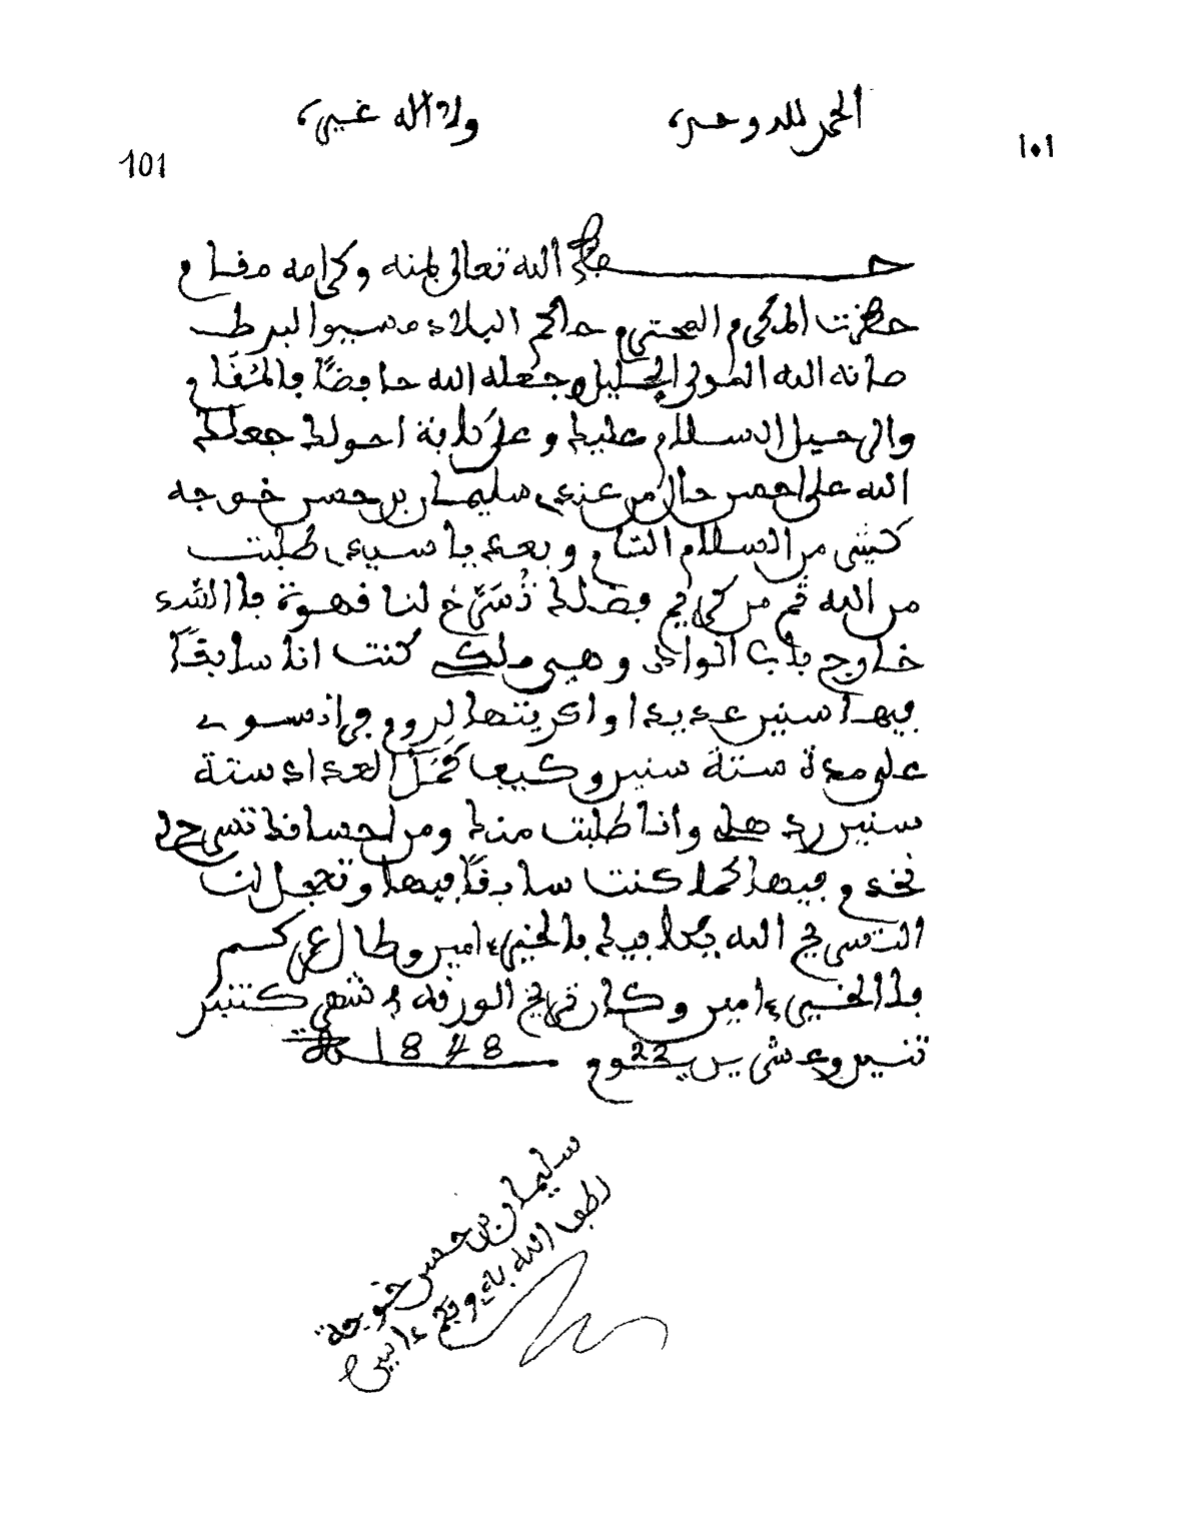 الحمد لله وحده ولا اله غيره
101 ١٠١
حفظ الله تعالى بمنه وكرامه مقام
حضرت المكرم المحترم حاكم البلاد مسيوا لبرط
صانه الله المولى الجليل وجعله الله حافضًا فالمُقَام
والرحيل السلام عليك وعلى كابة احولك جعلكم
الله على احصن حال من عند سليمان بن حصن خوجه
كثير من السلام التام وبعد يا سيدي طُلبت
من الله ثم من كرايم فضلك تُسَرَّح لنا قهوة فا السّد
خارج باب الواد وهي ملك كنت انا سابقًا
فيها سنين عديدا واكريتها لروم فرانسوي
على مدة ستة سنين وكيف كَمَل العداد ستة
سنين رد هالي وانا طُلبت منك ومن احسانك تسرح لي
نخدم فيها كما كنت سابقًا فيها وتجعل لنا
التسريح الله يكافيك بالخير ءامين وطالع كسم
فا الخير ءامين وكان تاريخ الورقه في شهر كتنبر
تنين وعشرين يوم 22 1848
سليمان بن حصن خوجة
لطف الله به وبكم ءامين